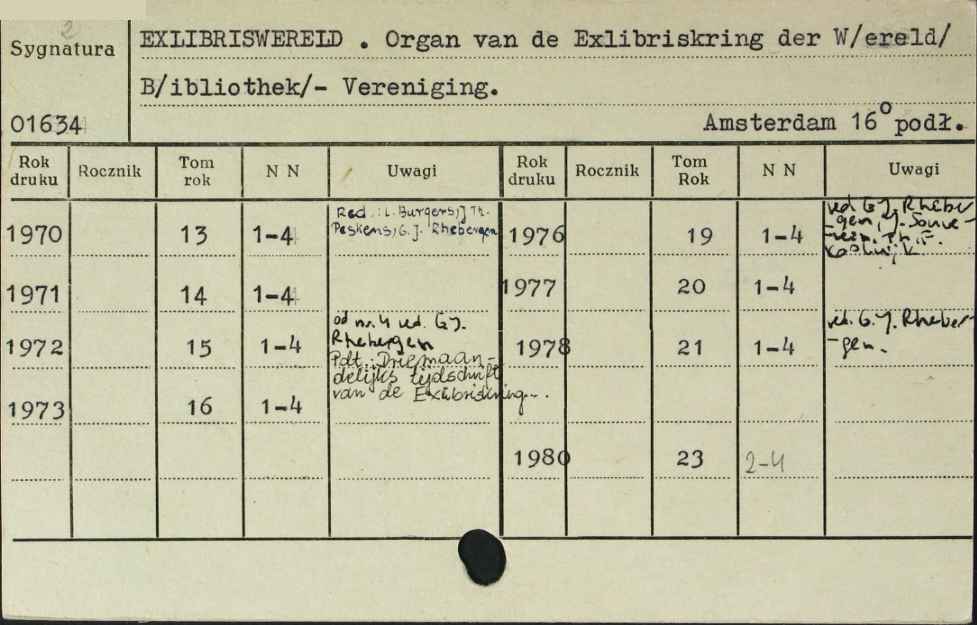 2
Sygnatura
EXLIBRISWERELD . Organ van de Exlibriskring der W/ereld/
B/ibliothek/- Vereniging.
01634
Amsterdam 16° podł.
Rok druku Rocznik Tom rok N N Uwagi Rok druku Rocznik Tom Rok N N Uwagi
1970 13 1-4 Red.: L. Burgers, J Th.
Peskens, G.J. Rhebergen
1976 19 1-4 red G.J. Rheber
gen, J.
Th. F.
1971 14 1-4
1977 20 1-4
1972 15 1-4 od nr. 4 red. G.J.
Rhebergen
Pdt.: Driemaan-
delijks tijdschrift
van de Exlibriskring...
1978 21 1-4 red. G.J. Rheber-
-gen.
1973 16 1-4
1980 23 2-4